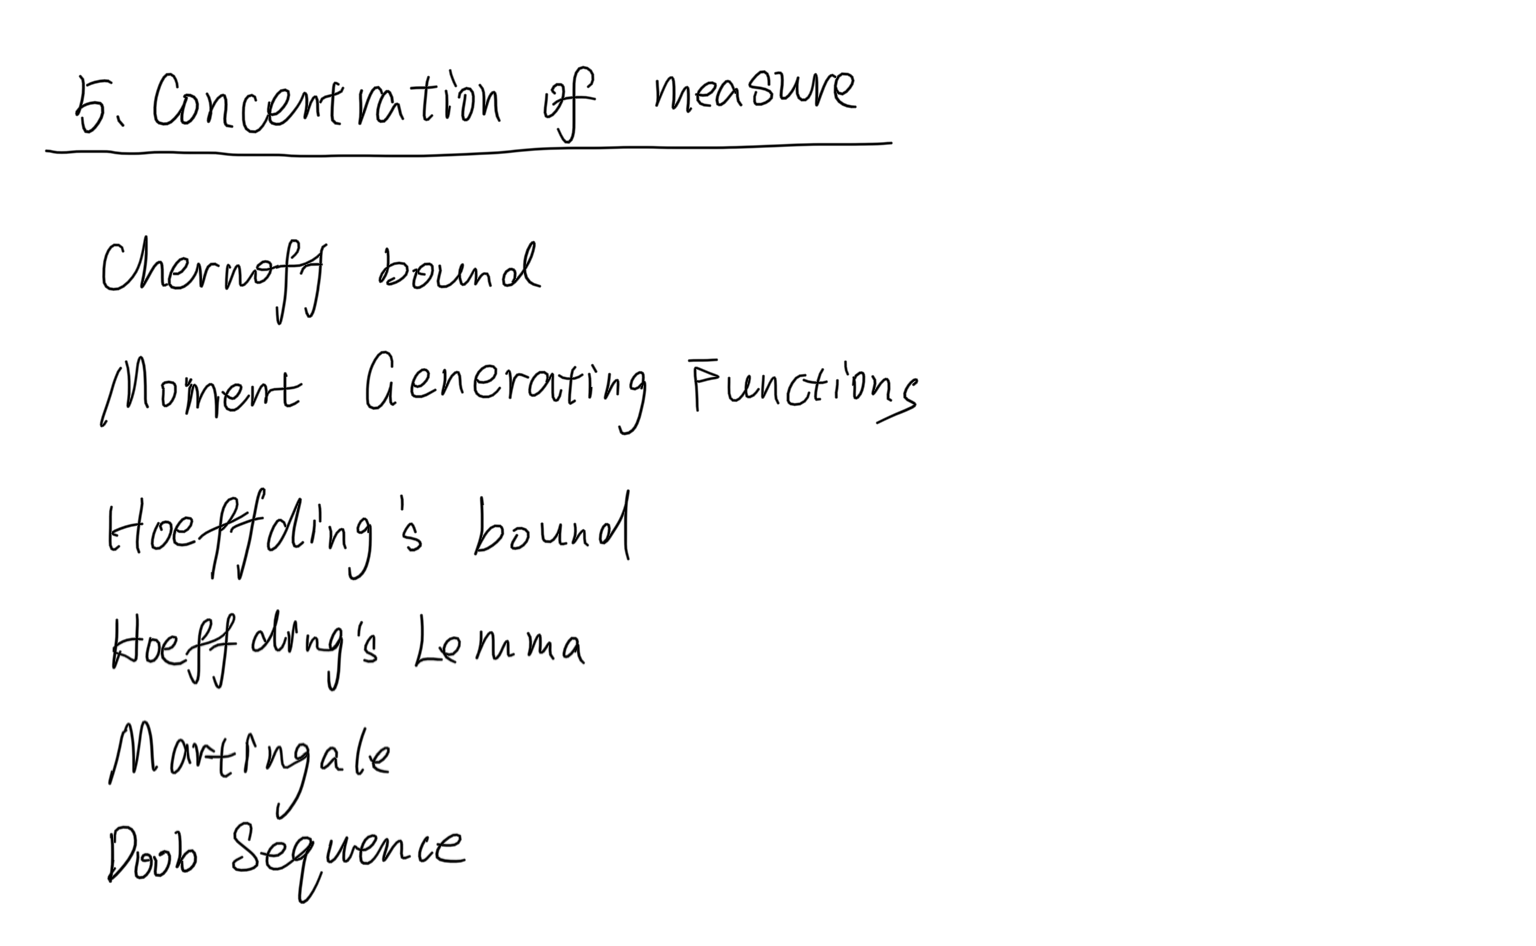 5. Concentration of measure
Chernoff bound
Moment Generating Functions
Hoeffding's bound
Hoeffding's Lemma
Martingale
Doob Sequence